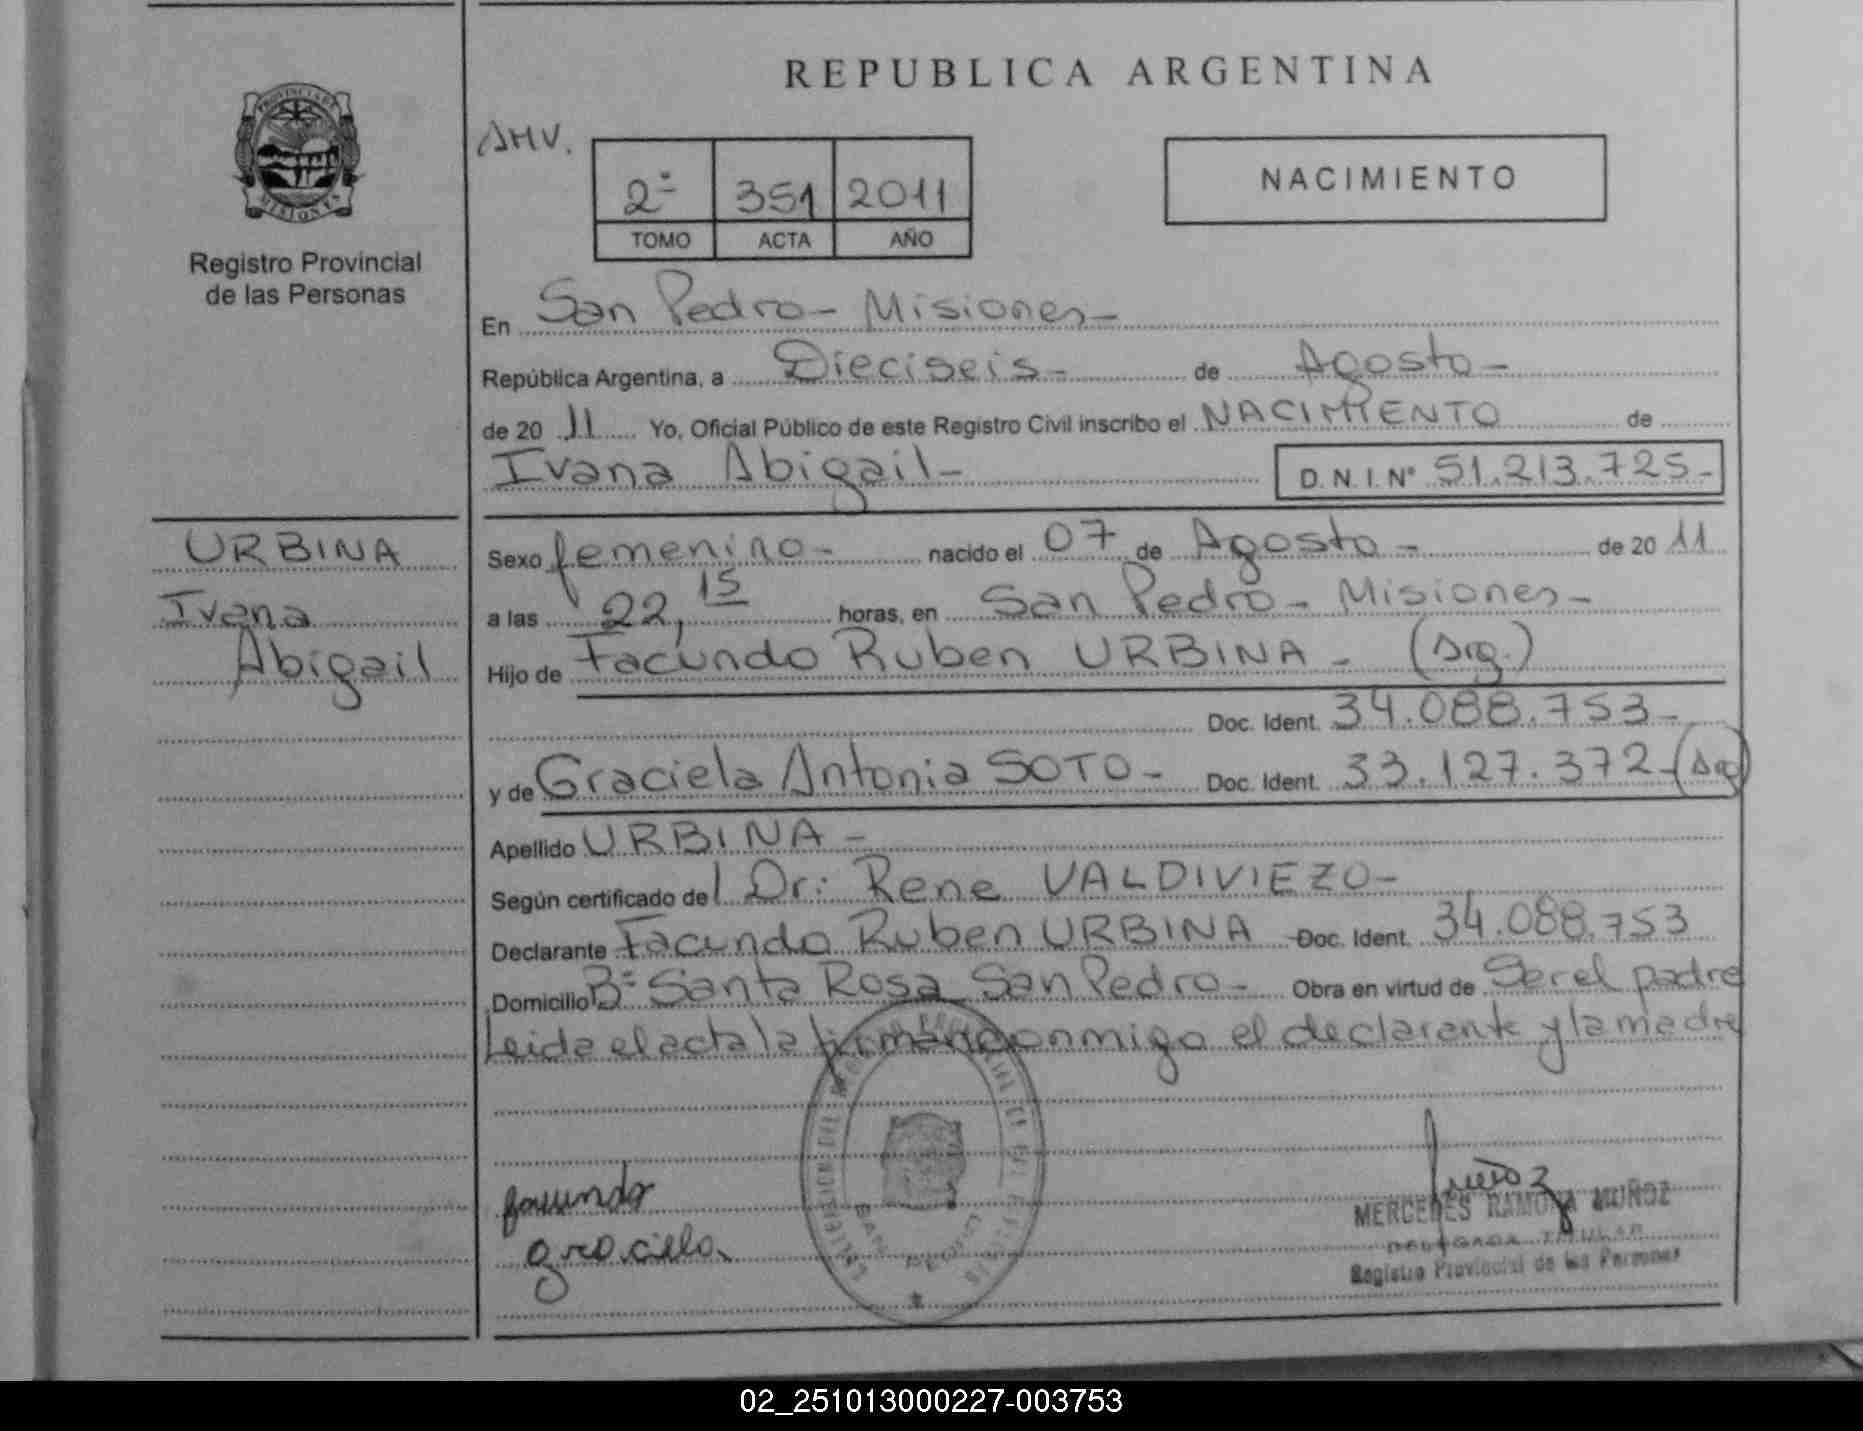 REPUBLICA ARGENTINA
PROVINCIA DE
MISIONES
Registro Provincial
de las Personas
AMV.
2º 351 2011
TOMO ACTA AÑO
NACIMIENTO
En San Pedro - Misiones -
República Argentina, a Dieciseis - de Agosto -
de 20 11 Yo, Oficial Público de este Registro Civil inscribo el NACIMIENTO de
Ivana Abigail - D.N.I. Nº 51.213.725-
URBINA
Ivana
Abigail
Sexo femenino - nacido el 07 de Agosto - de 20 11
a las 22,15 horas, en San Pedro - Misiones -
Hijo de Facundo Ruben URBINA - (Arg.)
Doc. Ident. 34.088.753-
y de Graciela Antonia SOTO - Doc. Ident. 33.127.372-(Arg)
Apellido URBINA -
Según certificado del Dr: Rene VALDIVIEZO-
Declarante Facundo Ruben URBINA - Doc. Ident. 34.088.753
Domicilio Bº Santa Rosa San Pedro - Obra en virtud de Ser el padre
Leida el acta la firman conmigo el declarante y la madre
facundo
graciela
MERCEDES RAMONA MUÑOZ
DELEGADA TITULAR
Registro Provincial de las Personas
02_251013000227-003753